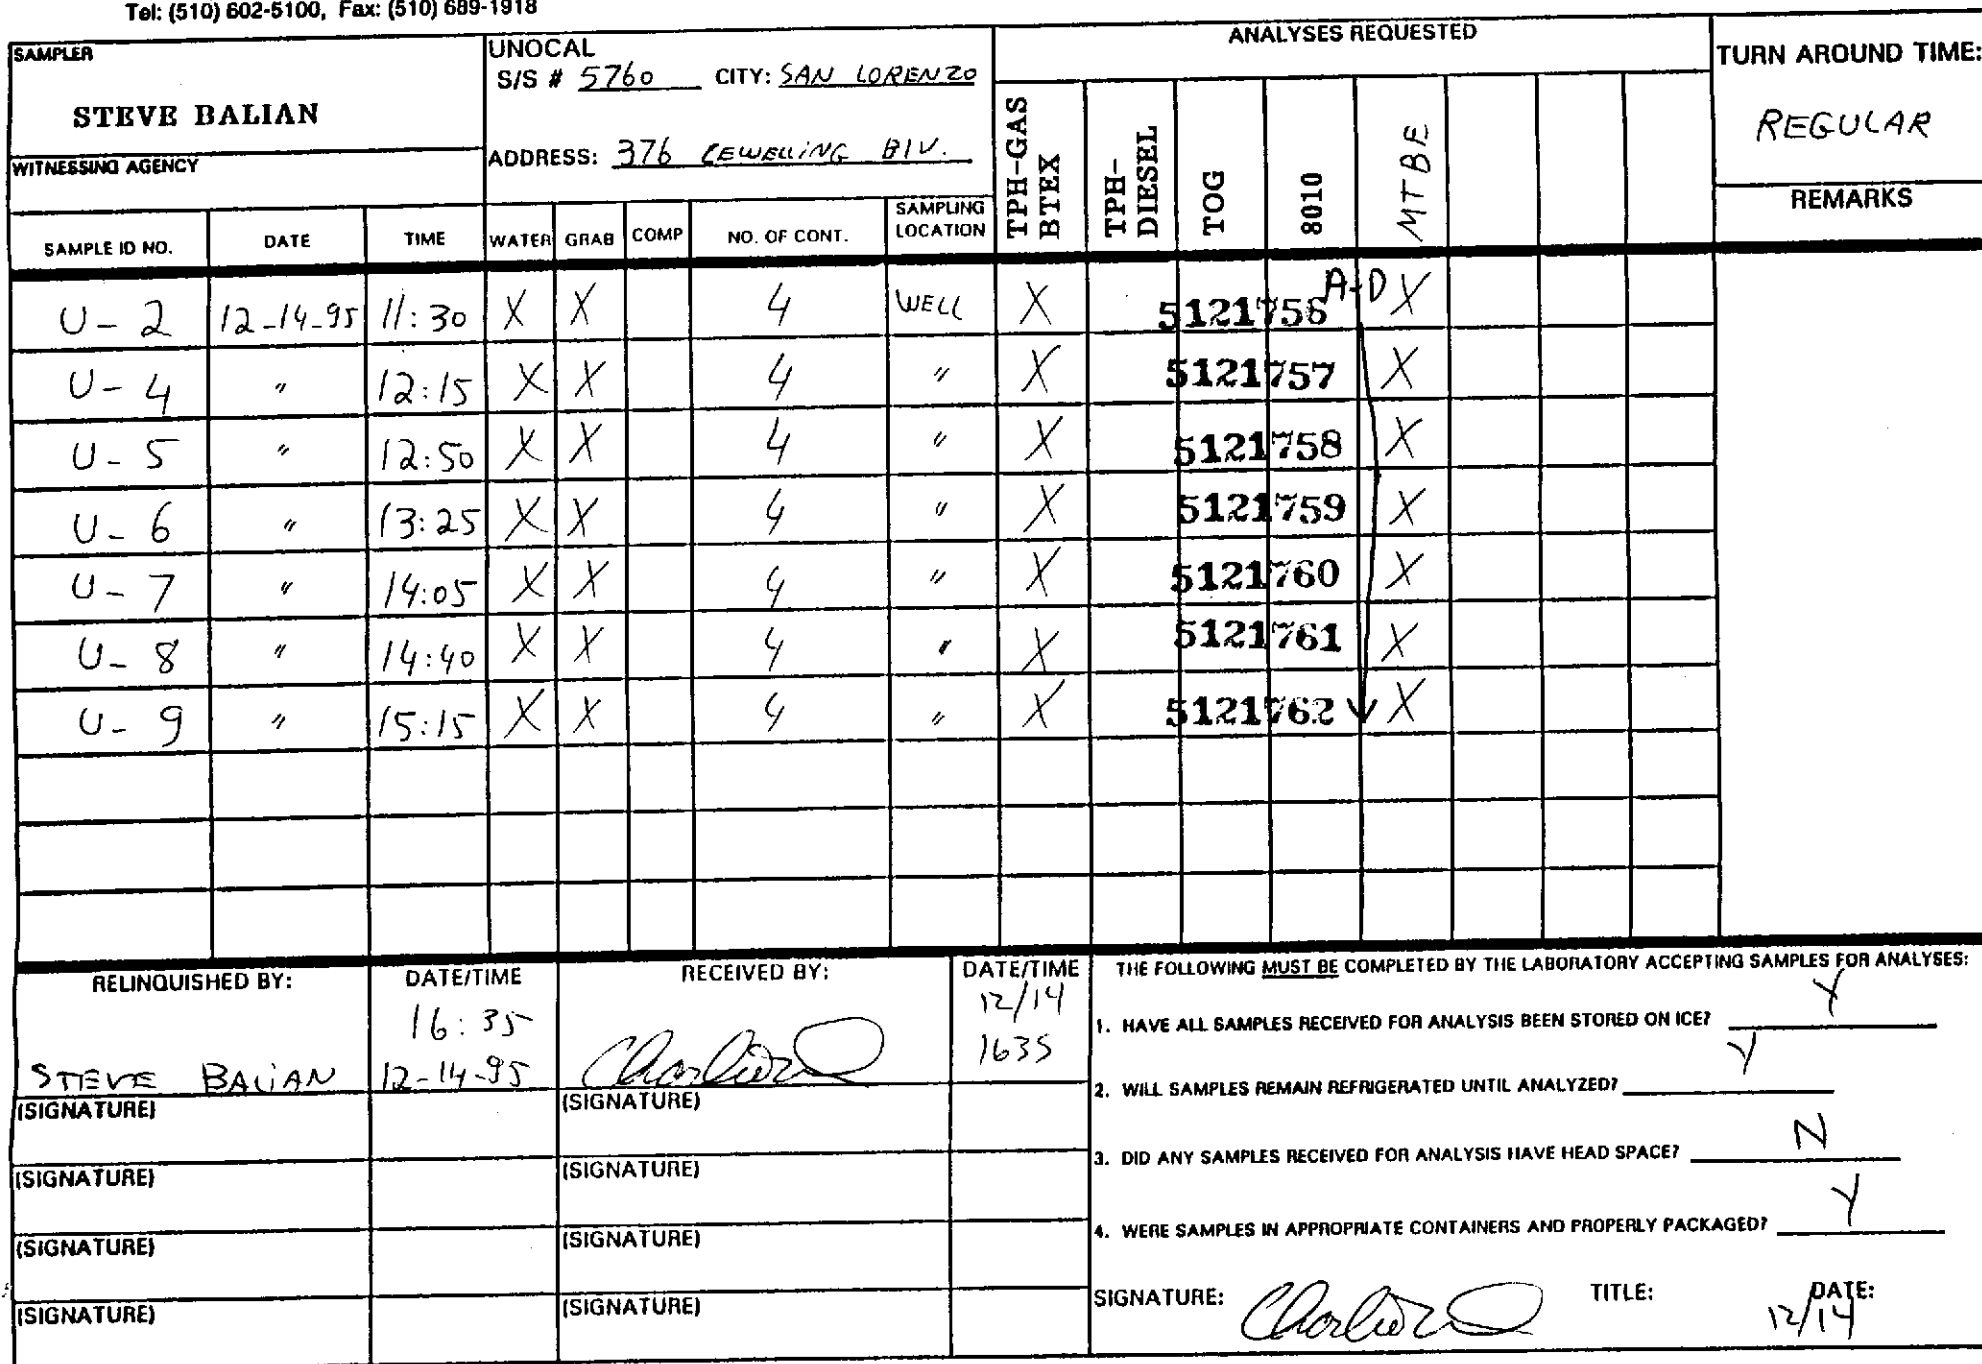 Tel: (510) 602-5100, Fax: (510) 689-1918
SAMPLER
STEVE BALIAN
WITNESSING AGENCY
UNOCAL
S/S # 5760 CITY: SAN LORENZO
ADDRESS: 376 LEWELLING BLV.
ANALYSES REQUESTED
TURN AROUND TIME:
REGULAR
REMARKS
SAMPLE ID NO. DATE TIME WATER GRAB COMP NO. OF CONT. SAMPLING LOCATION TPH-GAS BTEX TPH-DIESEL TOG 8010 MTBE
U-2 12-14-95 11:30 X X 4 WELL X 5121756 A-D X
U-4 " 12:15 X X 4 " X 5121757 X
U-5 " 12:50 X X 4 " X 5121758 X
U-6 " 13:25 X X 4 " X 5121759 X
U-7 " 14:05 X X 4 " X 5121760 X
U-8 " 14:40 X X 4 " X 5121761 X
U-9 " 15:15 X X 4 " X 5121762 X
RELINQUISHED BY: DATE/TIME RECEIVED BY: DATE/TIME
STEVE BALIAN
16:35
12-14-95
12/14
1635
(SIGNATURE) (SIGNATURE)
(SIGNATURE) (SIGNATURE)
(SIGNATURE) (SIGNATURE)
(SIGNATURE) (SIGNATURE)
THE FOLLOWING MUST BE COMPLETED BY THE LABORATORY ACCEPTING SAMPLES FOR ANALYSES:
1. HAVE ALL SAMPLES RECEIVED FOR ANALYSIS BEEN STORED ON ICE? Y
2. WILL SAMPLES REMAIN REFRIGERATED UNTIL ANALYZED? Y
3. DID ANY SAMPLES RECEIVED FOR ANALYSIS HAVE HEAD SPACE? N
4. WERE SAMPLES IN APPROPRIATE CONTAINERS AND PROPERLY PACKAGED? Y
SIGNATURE: TITLE: DATE:
12/14